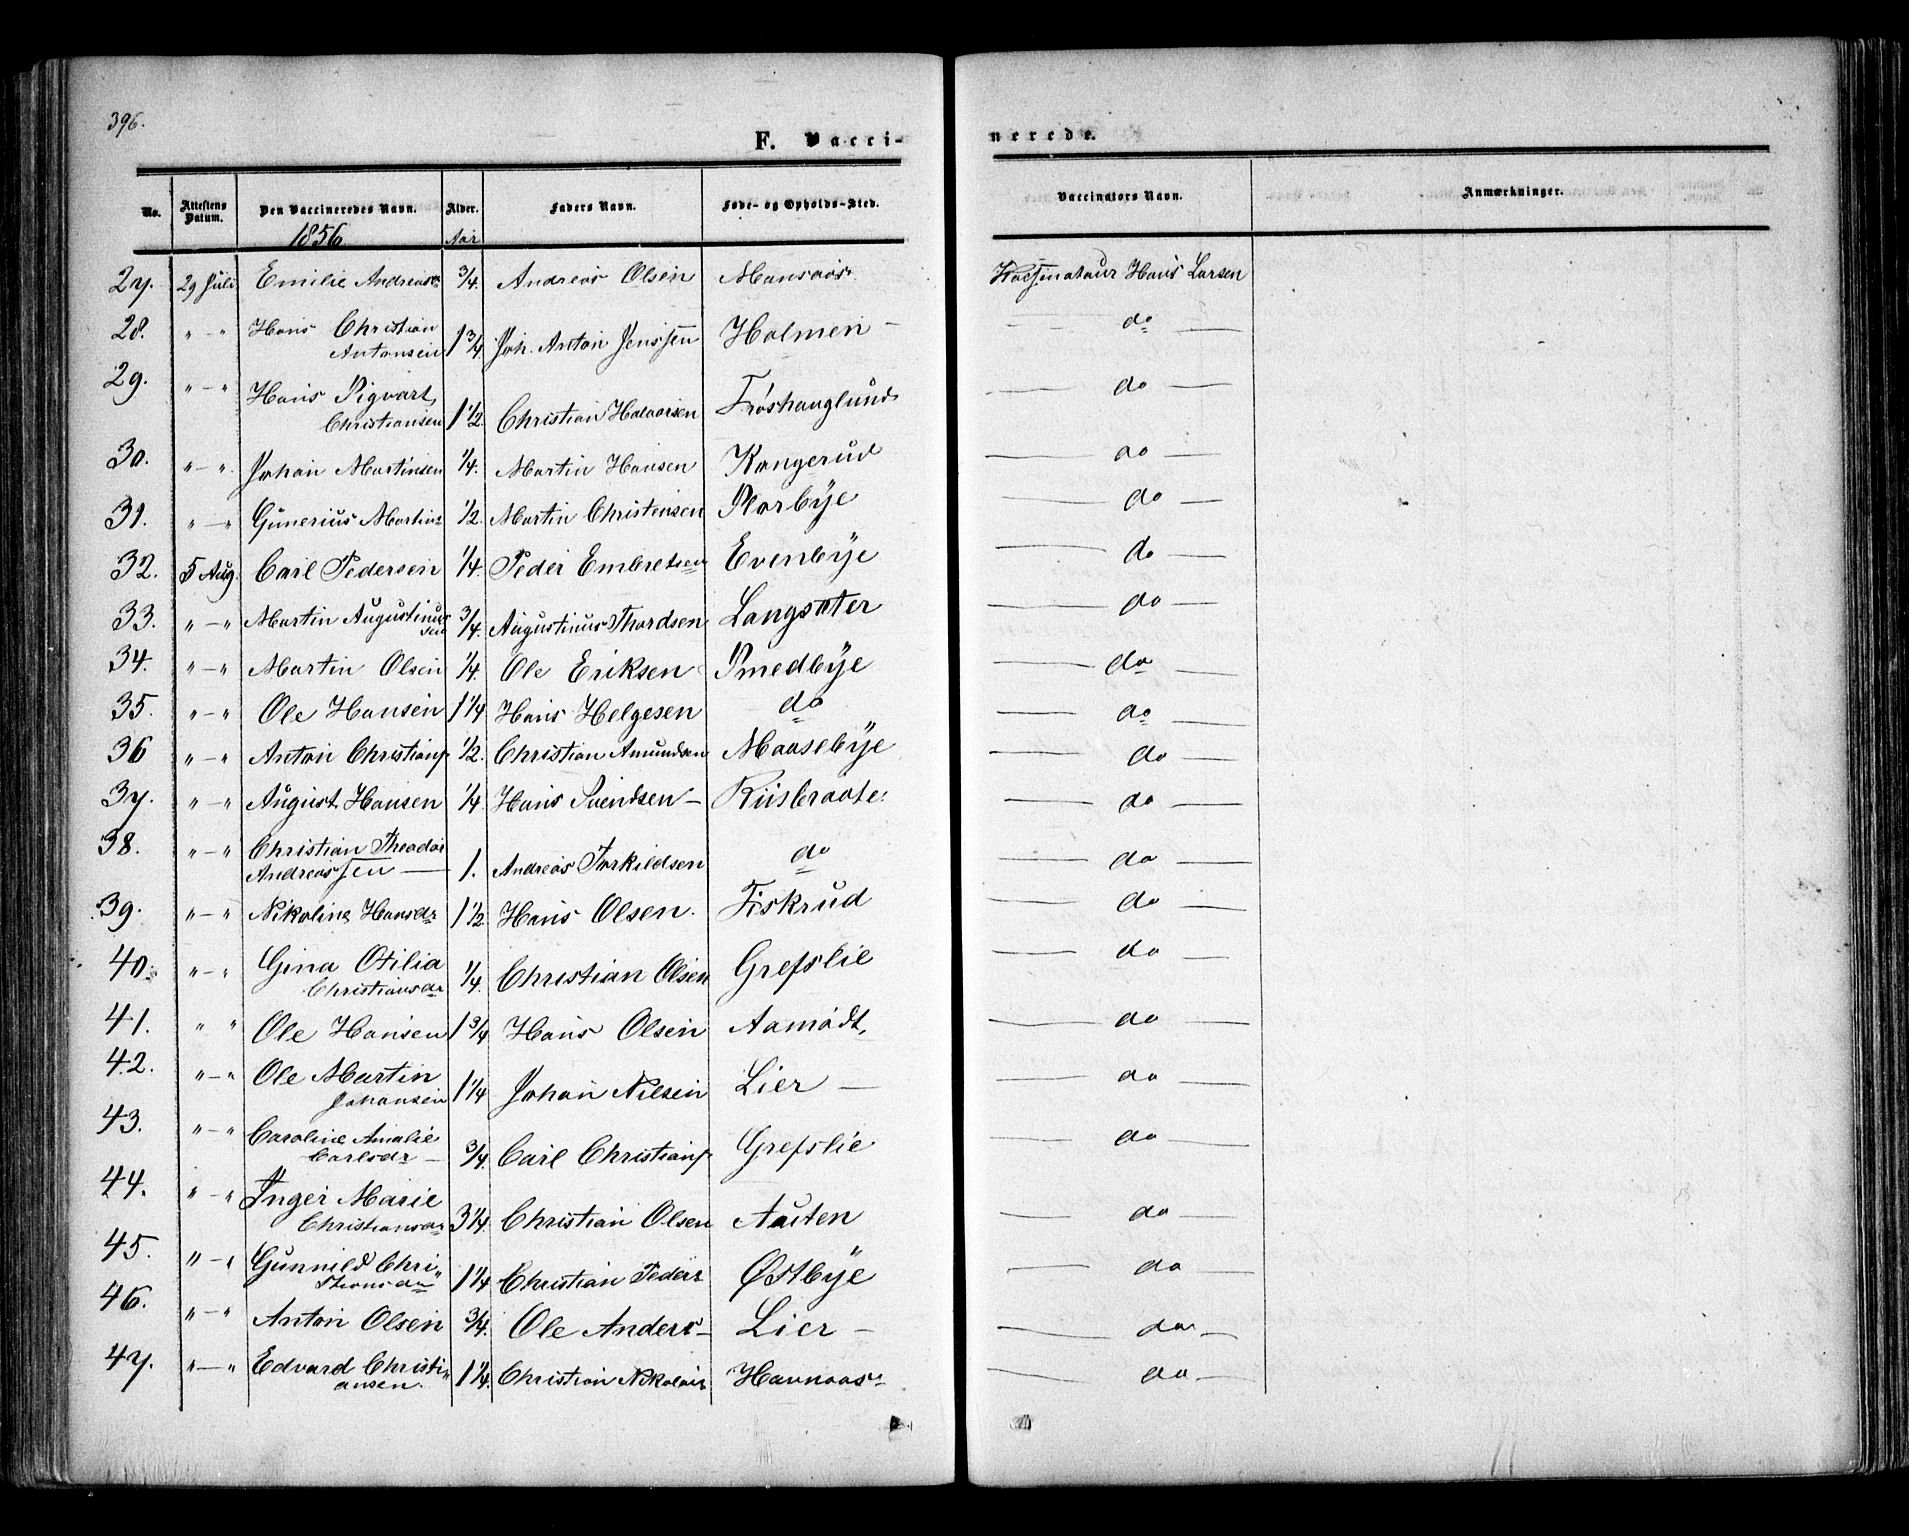 396.
F. Vacci-
nerede.
No. Attestens Datum. Den Vaccineredes Navn. Alder. Faders Navn. Føde- og Opholds-Sted. Vaccinators Navn. Anmærkninger.
1856 Aar
27. 29 Juli Emilie Andreasdr 3/4. Andreas Olsen Mansaas Hans Larsen
28. " — " Hans Christian Antonsen 1 3/4 Joh. Anton Jenssen Holmen — — do —
29. " — " Hans Sigvart Christiansen 1 1/2. Christian Halvorsen Frøshauglund — do —
30. " — " Johan Martinsen 1/4. Martin Hansen Kangerud — do —
31. " — " Gunerius Martins 1/2. Martin Christensen Norbye — do —
32. 5 Aug. Carl Pedersen 1/4. Peder Embretsen Evenbye — do —
33. " — " Martin Augustinussen 3/4. Augustinus Thordsen Langsæter — do —
34. " — " Martin Olsen 1/4. Ole Eriksen Smedbye — do —
35. " — " Ole Hansen 1 1/4 Hans Helgesen do — do —
36 " — " Anton Christians 1/2. Christian Amundsen Maasebye — do —
37. " — " August Hansen 1/4. Hans Svendsen — Riisbraate — do —
38. " — " Christian Theodor Andreassen — 1. Andreas Torkildsen do — do —
39. " — " Nikoline Hansdr 1 1/2. Hans Olsen. Fiskrud — do —
40. " — " Gina Otilia Christiansdr 1/4. Christian Olsen Grefslie — do —
41. " " Ole Hansen 1 3/4 Hans Olsen Aamodt, — do —
42. " — " Ole Martin Johansen 1 1/4 Johan Nilsen Lier — — do —
43. " — " Caroline Amalie Carlsdr — 3/4. Carl Christians Grefslie — do —
44. " — " Inger Marie Christiansdr 3 1/4. Christian Olsen Austen — do —
45. " — " Gunnild Christiansdr 1 1/4 Christian Peders Østbye — do —
46. " — " Anton Olsen 3/4. Ole Anders — Lier — — do —
47. " — " Edvard Christiansen. 1 1/4. Christian Nikolais Havnaas — do —